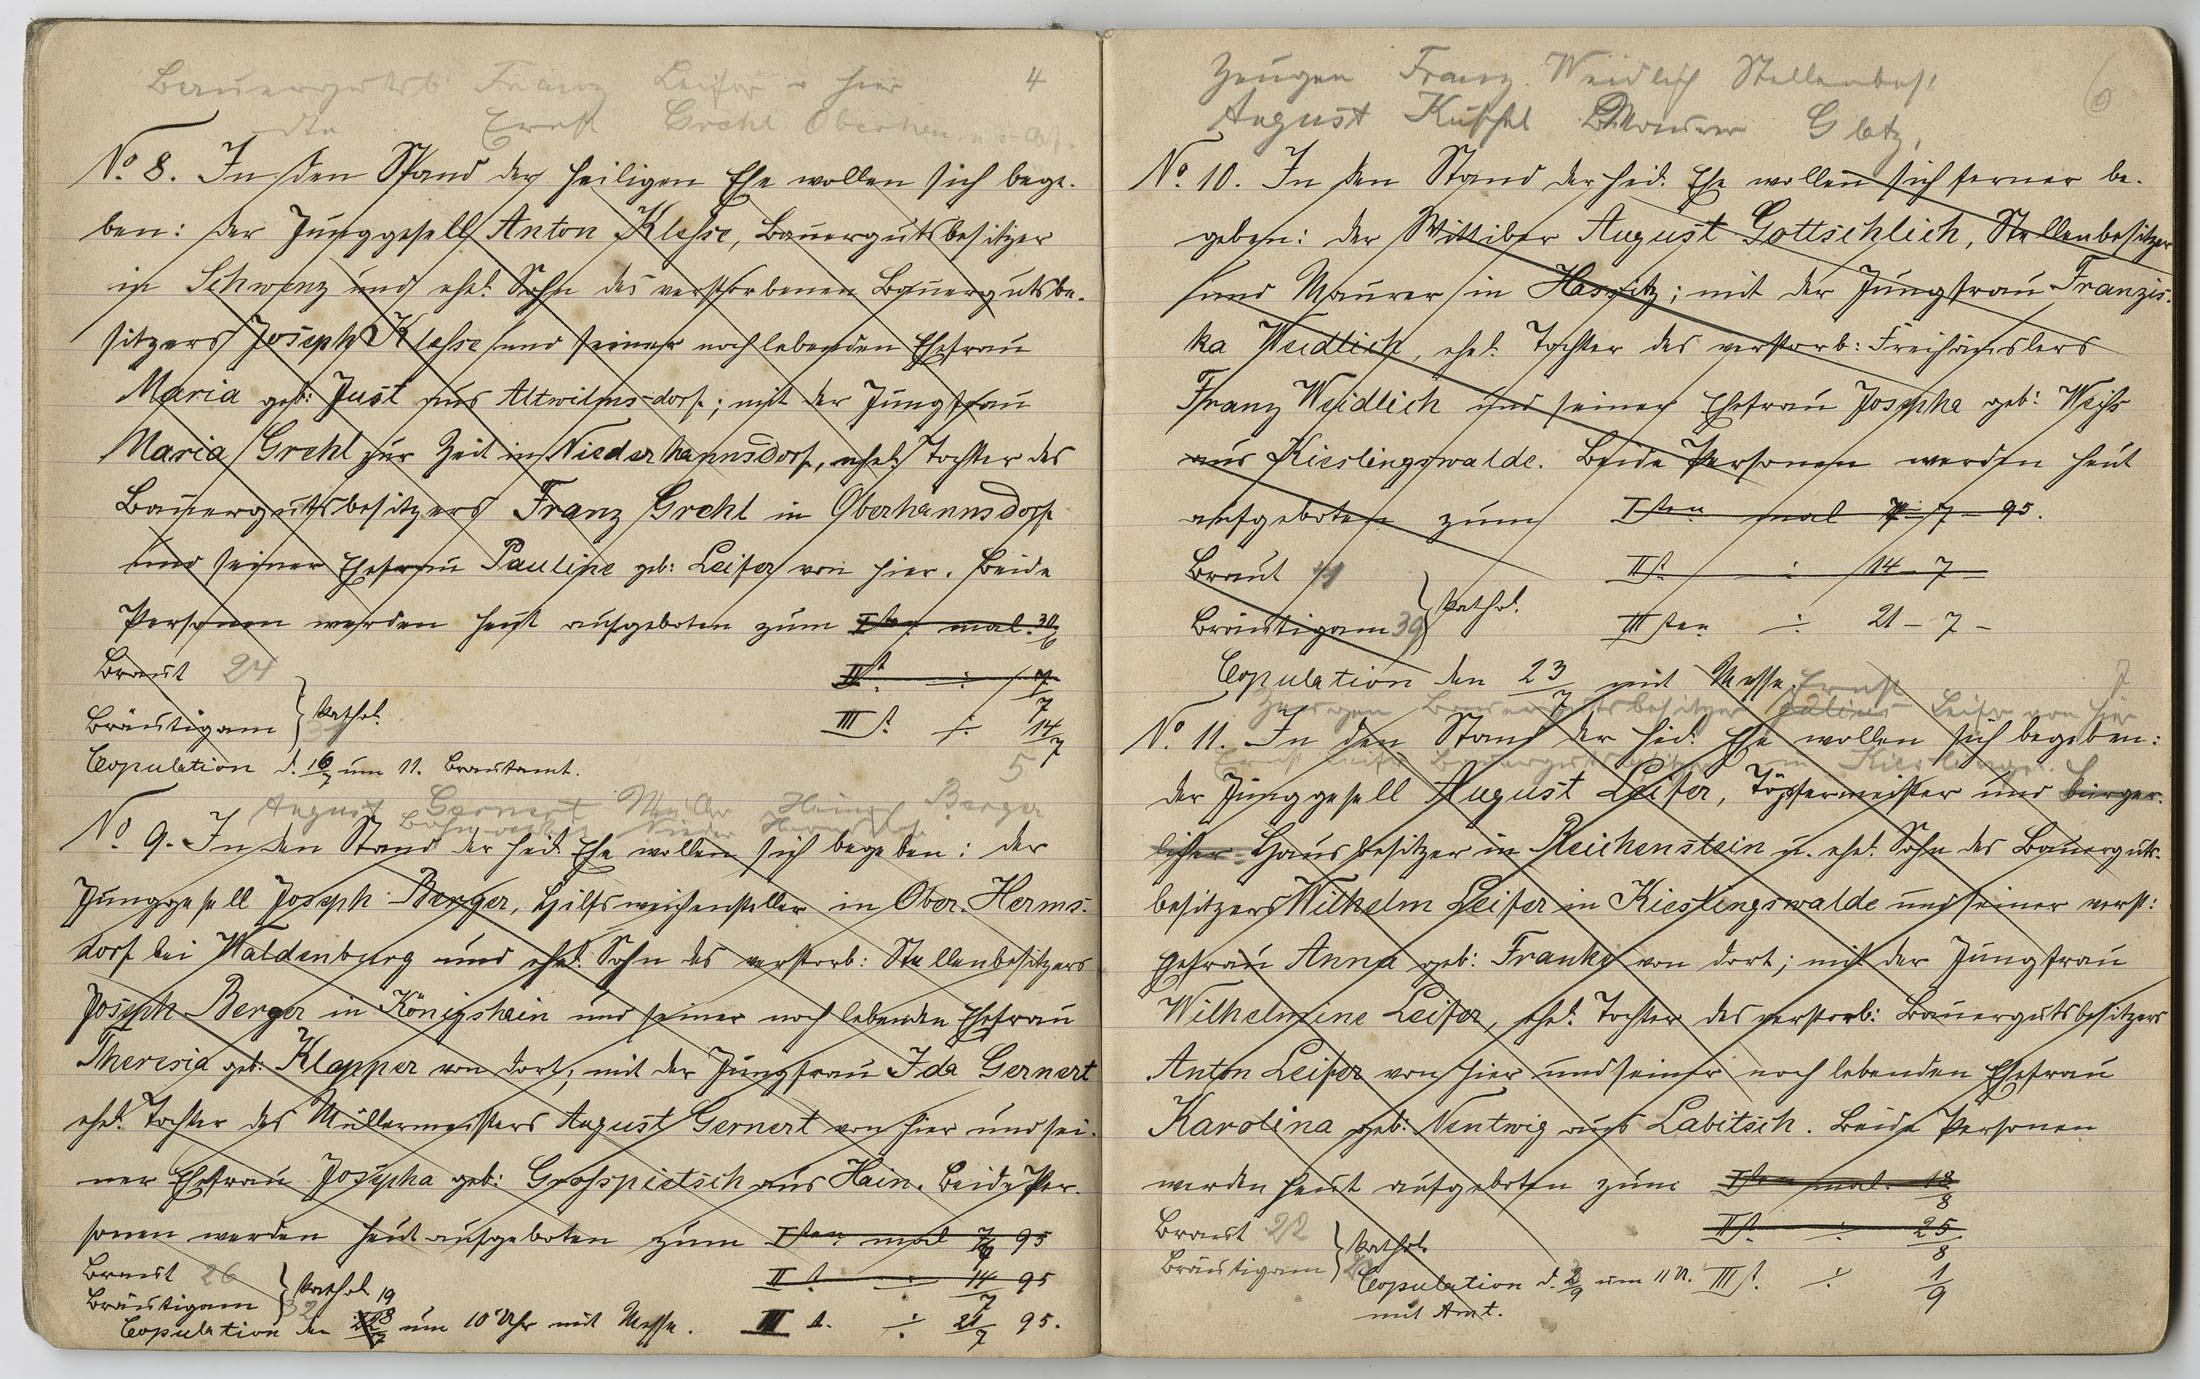 Bauergutsb. Franz Leifer v hier 4
dto Ernst Grehl
No. 8. In den Stand der heiligen Ehe wollen sich bege-
ben: der Junggesell Anton Klesse, Bauergutsbesitzer
in Schwenz und ehel. Sohn des verstorbenen Bauergutsbe-
sitzers Joseph Klesse und seiner noch lebenden Ehefrau
Maria geb: Just aus Altwilmsdorf; mit der Jungfrau
Maria Grehl zur Zeit in Niederhannsdorf, ehel. Tochter des
Bauergutsbesitzers Franz Grehl in Oberhannsdorf
und seiner Ehefrau Pauline geb: Leifer von hier. Beide
Personen werden heut aufgeboten zum Iten mal. 30/6
Braut 24 II t. ÷ 7/7
Bräutigam } kathol. III t. ÷ 14/7
Copulation d. 16/7 um 11. Brautamt.
5
August Gernert Müller Heinrich Berger
Bahnwärter Nieder Hermsdorf
No 9. In den Stand der heil. Ehe wollen sich begeben: der
Junggesell Joseph Berger, Hilfsweichensteller in Ober-Herms-
dorf bei Waldenburg und ehel. Sohn des verstorb: Stellenbesitzers
Joseph Berger in Königshain und seiner noch lebenden Ehefrau
Theresia geb: Klapper von dort; mit der Jungfrau Ida Gernert
ehel. Tochter des Müllermeisters August Gernert von hier und sei-
ner Ehefrau Josepha geb: Großpietsch aus Hain. Beide Per-
sonen werden heut aufgeboten zum Iten mal 95
Braut 26 II t. ÷ 14/7 95
Bräutigam 32 } kathol. 19
Copulation den um 10 Uhr mit Messe. III t. ÷ 21/7 95.
Zeugen Franz Weidlich Stellenbes. 6
August Kuschel Maurer Glatz,
No. 10. In den Stand der heil. Ehe wollen sich ferner be-
geben: der Wittiber August Gottschlich, Stellenbesitzer
und Maurer in Hassitz; mit der Jungfrau Franzis-
ka Weidlich, ehel. Tochter des verstorb: Freihäuslers
Franz Weidlich und seiner Ehefrau Josepha geb: Weiß
aus Kieslingswalde. Beide Personen werden heut
aufgeboten zum Iten mal 7 - 95.
Braut 41 II t. ÷ 14 - 7 -
Bräutigam 39 } kathol. III ten ÷ 21 - 7 -
Copulation den 23/7 mit Messe. 7
Zeugen Bauergutsbesitzer Julius Ernst Leifer von hier
Ernst Leifer Bauergutsbesitzer in
No. 11. In den Stand der heil. Ehe wollen sich begeben:
der Junggesell August Leifer, Töpfermeister und bürger-
licher Hausbesitzer in Reichenstein u. ehel. Sohn des Bauerguts-
besitzers Wilhelm Leifer in Kieslingswalde und seiner verst:
Ehefrau Anna geb: Franke von dort; mit der Jungfrau
Wilhelmine Leifer, ehel. Tochter des verstorb: Bauergutsbesitzers
Anton Leifer von hier und seiner noch lebenden Ehefrau
Karolina geb: Nentwig aus Labitsch. Beide Personen
werden heut aufgeboten zum Iten mal. 18/8
Braut 22 II t. ÷ 25/8
Bräutigam } kathol.
Copulation d. 2/9 um 11 U. III t. ÷ 1/9
mit Amt.